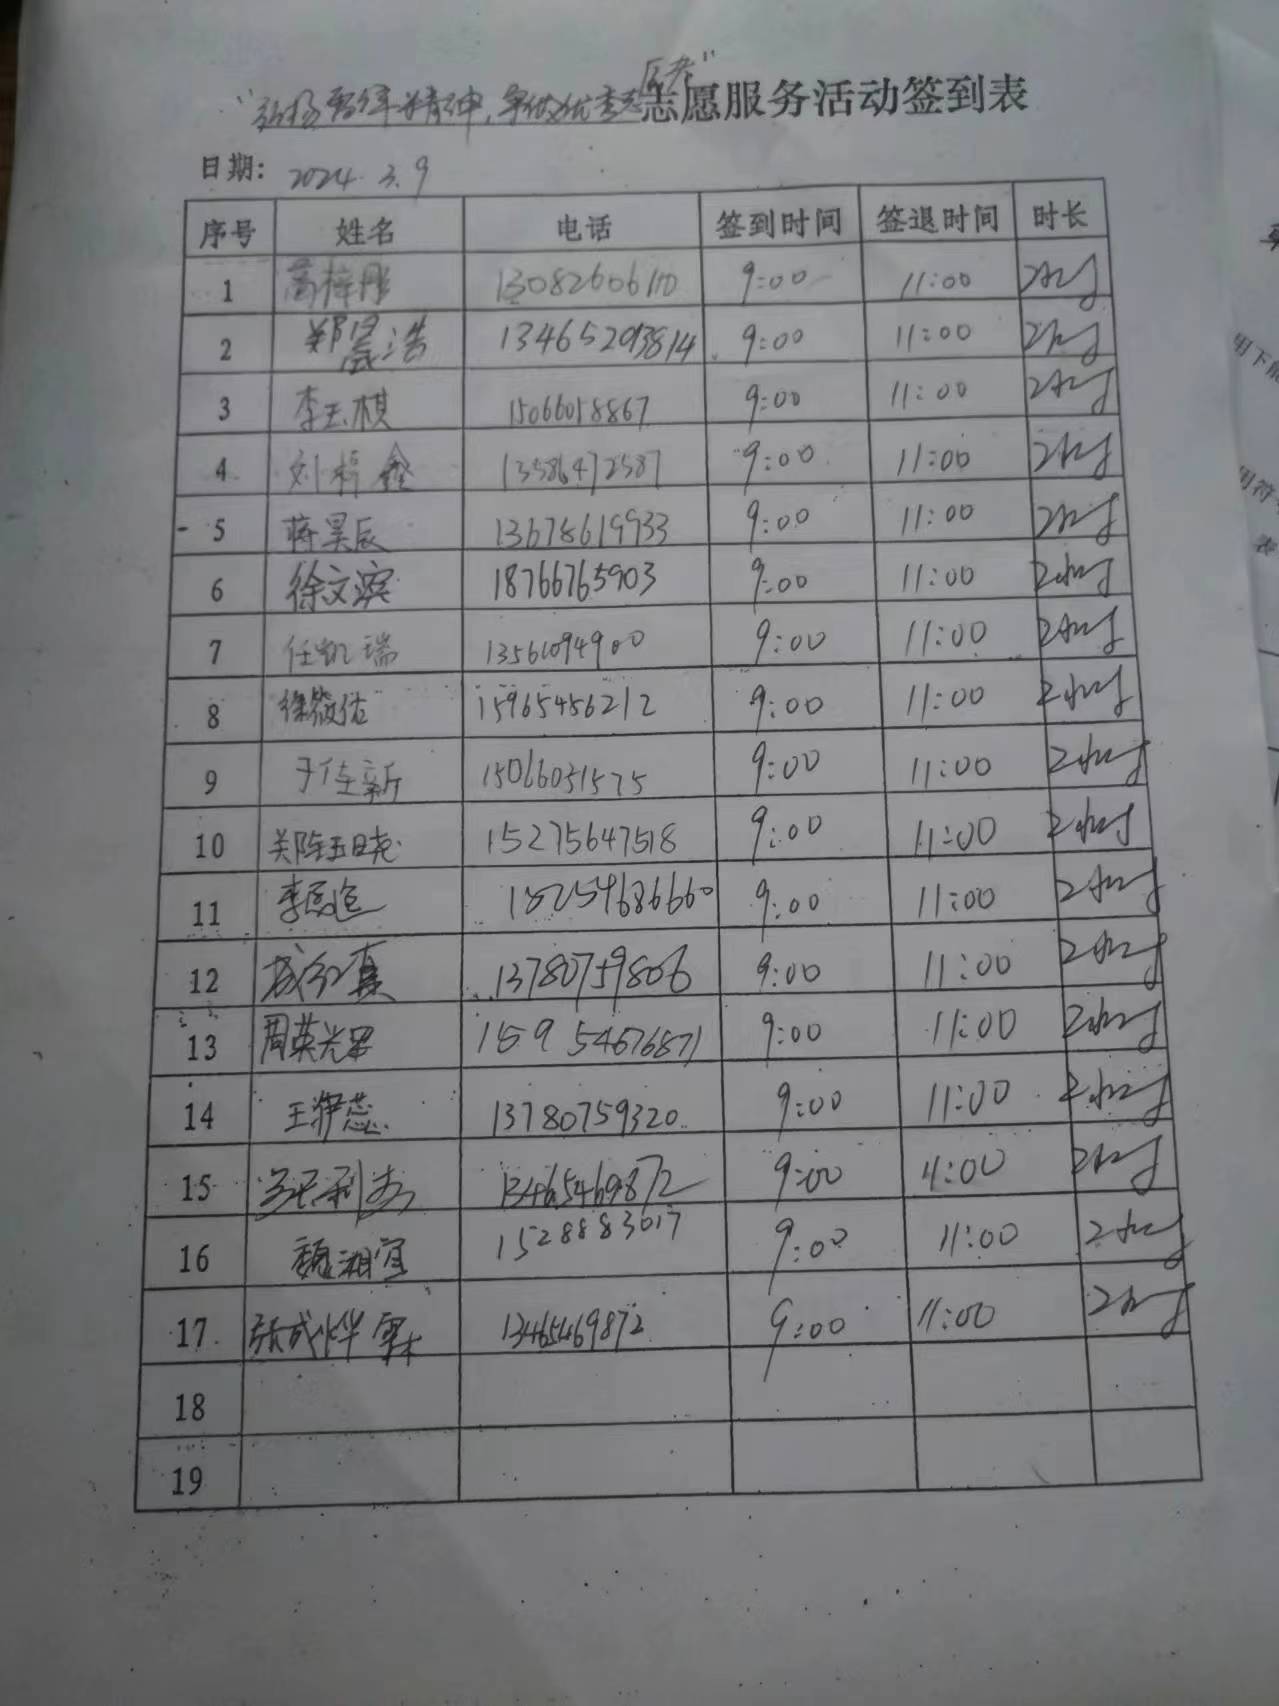 志愿服务活动签到表
日期: 2024.3.9
序号 姓名 电话 签到时间 签退时间 时长
1 高梓彤 13082606110 9:00 11:00 2小时
2 郑晟浩 13465293814 9:00 11:00 2小时
3 李玉棋 15066018867 9:00 11:00 2小时
4 刘梓鑫 13586472587 9:00 11:00 2小时
5 蒋昊辰 13678619933 9:00 11:00 2小时
6 徐文滨 18766765903 9:00 11:00 2小时
7 任凯瑞 13561094900 9:00 11:00 2小时
8 徐筱佑 15965456212 9:00 11:00 2小时
9 于佳新 15066051575 9:00 11:00 2小时
10 关陈玉晓 15275647518 9:00 11:00 2小时
11 9:00 11:00 2小时
12 13780759806 9:00 11:00 2小时
13 15954676871 9:00 11:00 2小时
14 王伊蕊 13780759320 9:00 11:00 2小时
15 13465469872 9:00 11:00 2小时
16 魏湘宜 1528883017 9:00 11:00 2小时
17 张成烨 13465469872 9:00 11:00 2小时
18
19